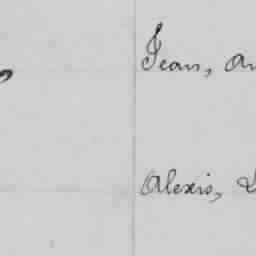 Jean, an
Alexis, D